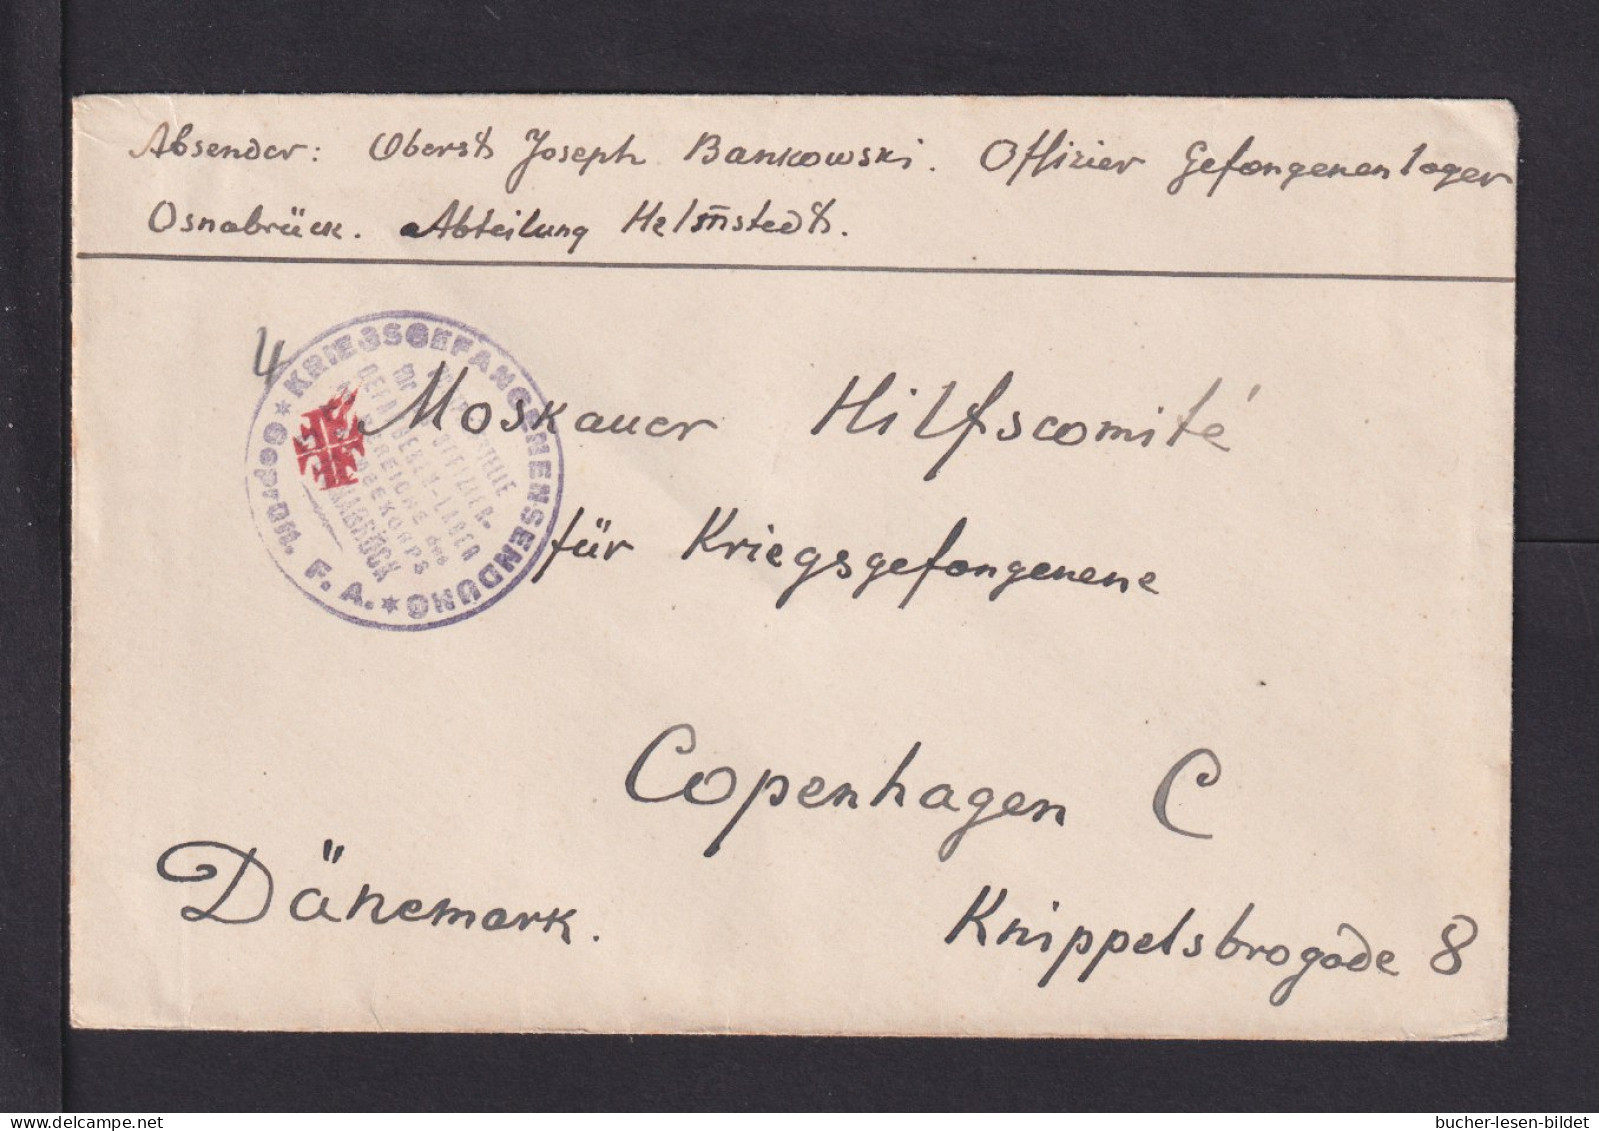 Absender: Oberst Joseph Bankowski. Offizier Gefangenenlager
Osnabrück. Abteilung Helmstedt.
4
KRIEGSGEFANGENENSENDUNG
Geprüft. F. A.
für OFFIZIER-
GEFANGENEN-LAGER
BEREICHE des
OSNABRÜCK
Moskauer Hilfscomité
für Kriegsgefangenene
Copenhagen C
Dänemark.
Knippelsbrogade 8
bucher-lesen-bildet